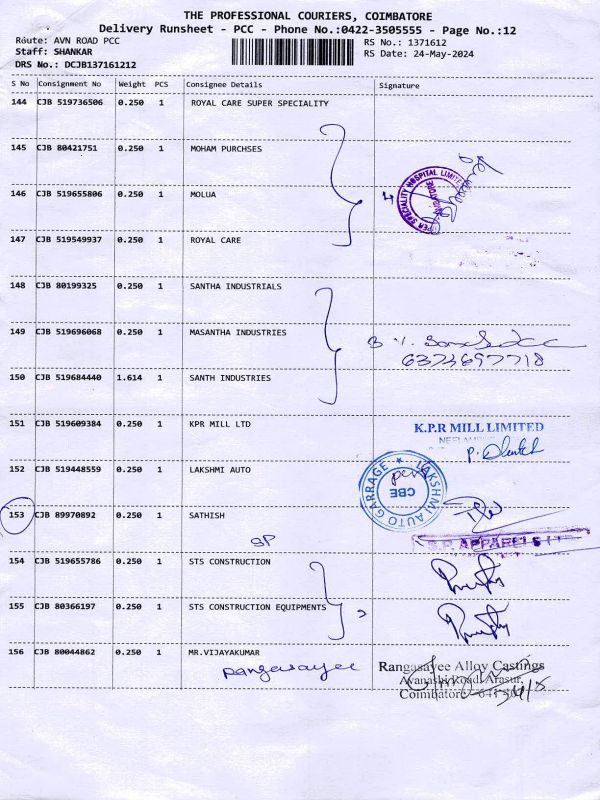 THE PROFESSIONAL COURIERS, COIMBATORE
Delivery Runsheet - PCC - Phone No.:0422-3505555 - Page No.:12
Route: AVN ROAD PCC
Staff: SHANKAR
DRS No.: DCJB137161212
RS No.: 1371612
RS Date: 24-May-2024
S No Consignment No Weight PCS Consignee Details Signature
144 CJB 519736506 0.250 1 ROYAL CARE SUPER SPECIALITY
145 CJB 80421751 0.250 1 MOHAM PURCHSES
146 CJB 519655806 0.250 1 MOLUA
SPECIALITY HOSPITAL LIMITED
147 CJB 519549937 0.250 1 ROYAL CARE
148 CJB 80199325 0.250 1 SANTHA INDUSTRIALS
149 CJB 519696068 0.250 1 MASANTHA INDUSTRIES
6373697718
150 CJB 519684440 1.614 1 SANTH INDUSTRIES
151 CJB 519609384 0.250 1 KPR MILL LTD
K.P.R MILL LIMITED
152 CJB 519448559 0.250 1 LAKSHMI AUTO
LAKSHMI AUTO GARRAGE
CBE
153 CJB 89970892 0.250 1 SATHISH
SP
S.P. APPARELS
154 CJB 519655786 0.250 1 STS CONSTRUCTION
155 CJB 80366197 0.250 1 STS CONSTRUCTION EQUIPMENTS
156 CJB 80044862 0.250 1 MR.VIJAYAKUMAR
Rangasayee
Rangasayee Alloy Castings
Avanashi Road, Arasur,
Coimbatore